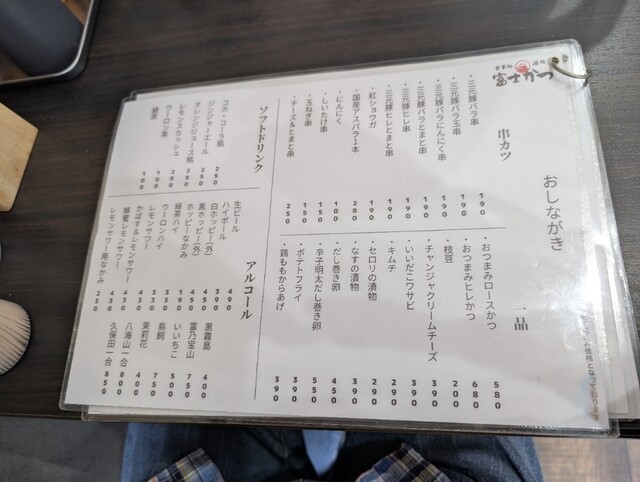 食事処 酒処
富士かつ
おしながき
串カツ
・三元豚バラ串 190
・三元豚バラ玉串 190
・三元豚バラにんにく串 190
・三元豚バラとまと串 190
・三元豚ヒレ串 190
・三元豚ヒレとまと串 190
・紅ショウガ 190
・国産アスパラ1本 280
・にんにく 150
・しいたけ串 150
・玉ねぎ串 100
・チーズ&とまと串 250
一品
・おつまみロースかつ 580
・おつまみヒレかつ 680
・枝豆 200
・チャンジャクリームチーズ 390
・いいだこワサビ 390
・キムチ 290
・セロリの漬物 290
・なすの漬物 390
・だし巻き卵 450
・辛子明太だし巻き卵 550
・ポテトフライ 390
・鶏ももからあげ 390
ソフトドリンク
コカ・コーラ瓶 250
ジンジャーエール 250
オレンジジュース瓶 250
レモンスカッシュ 250
ウーロン茶 100
緑茶 100
アルコール
生ビール 490
ハイボール 390
白ホッピー(外) 450
黒ホッピー(外) 450
ホッピーなかみ 190
緑茶ハイ 330
ウーロンハイ 330
レモンサワー 330
かぼす&レモンサワー 430
蜂蜜レモンサワー 430
レモンサワー用なかみ 250
黒霧島 400
富乃宝山 750
いいちこ 500
鳥飼 750
茉莉花 400
八海山一合 800
久保田一合 850